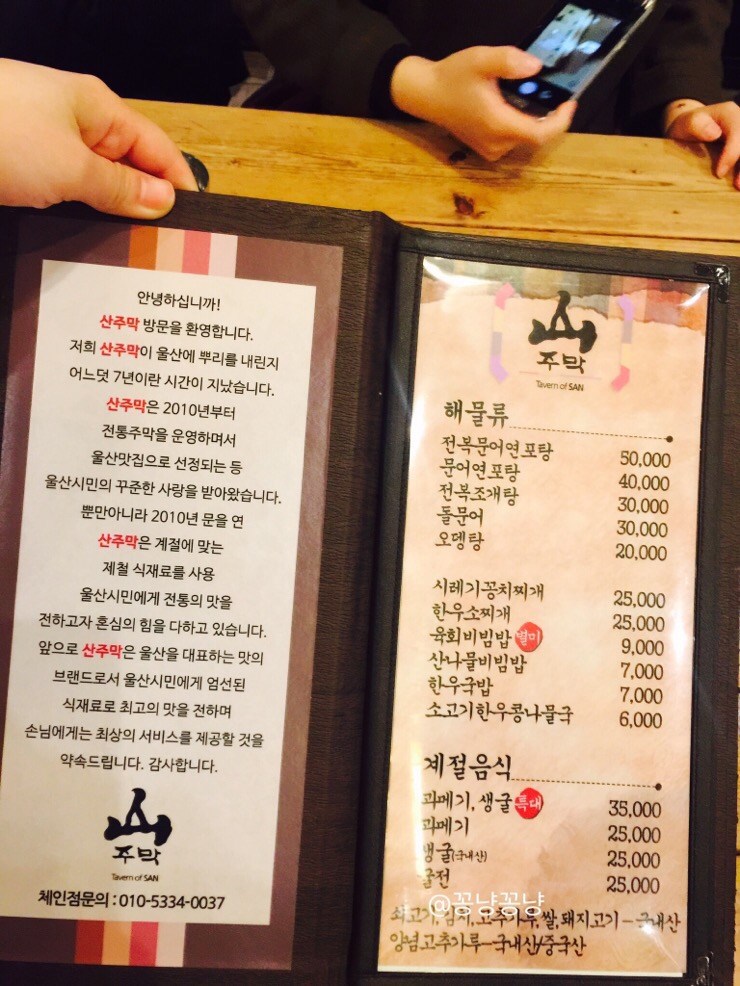 안녕하십니까!
산주막 방문을 환영합니다.
저희 산주막이 울산에 뿌리를 내린지
어느덧 7년이란 시간이 지났습니다.
산주막은 2010년부터
전통주막을 운영하며서
울산맛집으로 선정되는 등
울산시민의 꾸준한 사랑을 받아왔습니다.
뿐만아니라 2010년 문을 연
산주막은 계절에 맞는
제철 식재료를 사용
울산시민에게 전통의 맛을
전하고자 혼심의 힘을 다하고 있습니다.
앞으로 산주막은 울산을 대표하는 맛의
브랜드로서 울산시민에게 엄선된
식재료로 최고의 맛을 전하며
손님에게는 최상의 서비스를 제공할 것을
약속드립니다. 감사합니다.
山
주막
Tavern of SAN
체인점문의 : 010-5334-0037
山
주막
Tavern of SAN
해물류
전복문어연포탕 50,000
문어연포탕 40,000
전복조개탕 30,000
돌문어 30,000
오뎅탕 20,000
시레기꽁치찌개 25,000
한우소찌개 25,000
육회비빔밥 별미 9,000
산나물비빔밥 7,000
한우국밥 7,000
소고기한우콩나물국 6,000
계절음식
과메기, 생굴 특대 35,000
과메기 25,000
생굴(국내산) 25,000
굴전 25,000
@꽁냥꽁냥
쇠고기, 김치, 고추가루, 쌀, 돼지고기 - 국내산
양념고추가루-국내산/중국산